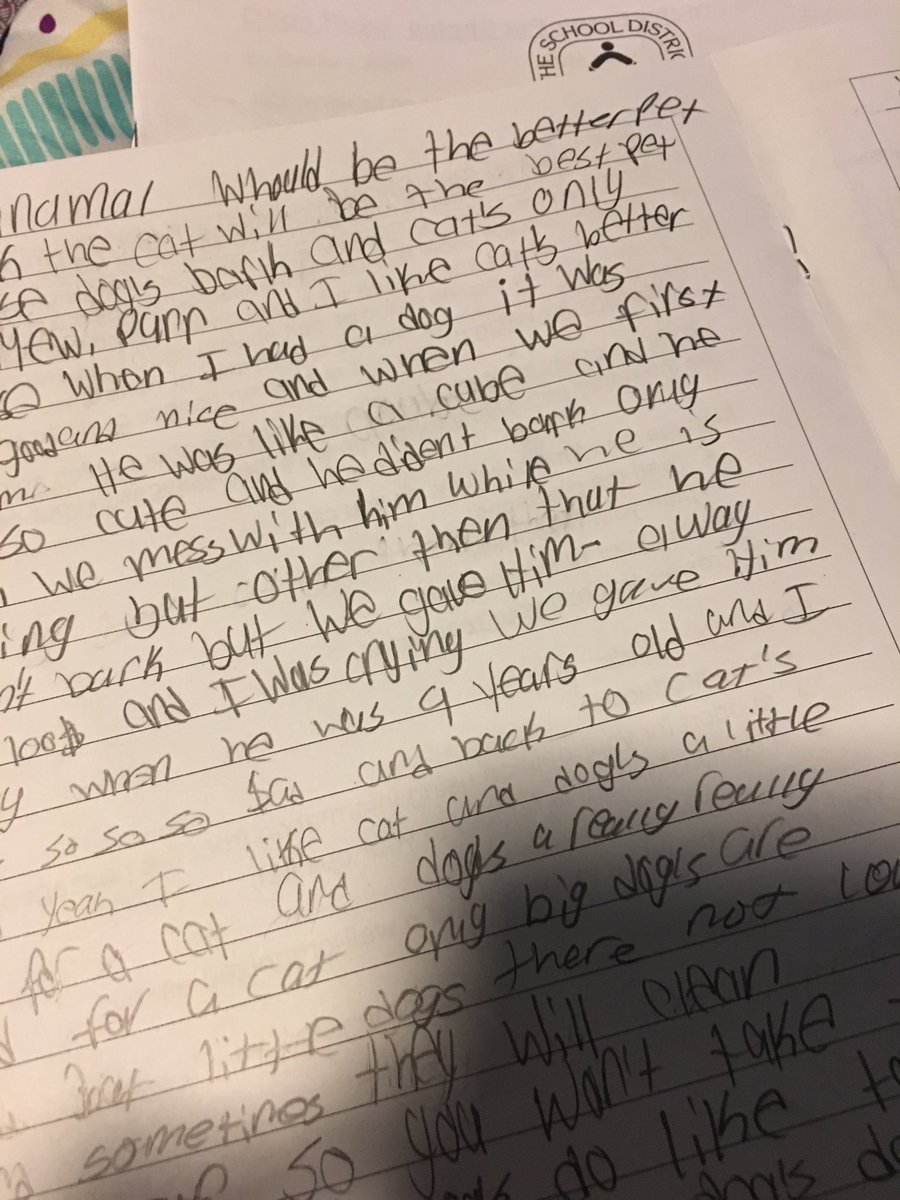 THE SCHOOL DISTRI
namal Whould be the better Pet
the cat will be the best pet
dog's barck and cat's only
Yew, Purr and I like cat's better
When I had a dog it was
good and nice and when we first
He was like a cube and he
so cute and he did'ent barck only
we mess with him while he is
ing but other then that he
bark but we gave Him away
and I was crying We gave Him
when he was 9 years old and I
so so so sad and back to Cat's
yeah I like cat and dog's a little
for a cat and dog's a really really
for a cat only big dog's are
little dogs there not lou
sometimes they will clean
so you won't take
do like to
dog's do